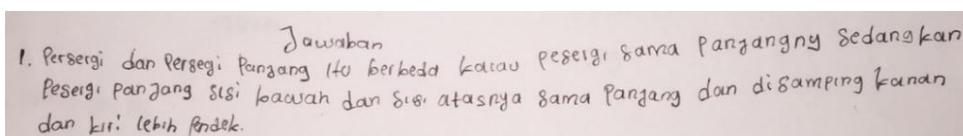 Jawaban
1. Persergi dan Persegi Panjang itu berbeda kalau pesergi sama Panjangny sedangkan
Pesergi panjang sisi bawah dan sisi atasnya sama Panjang dan disamping kanan
dan kiri lebih Pendek.